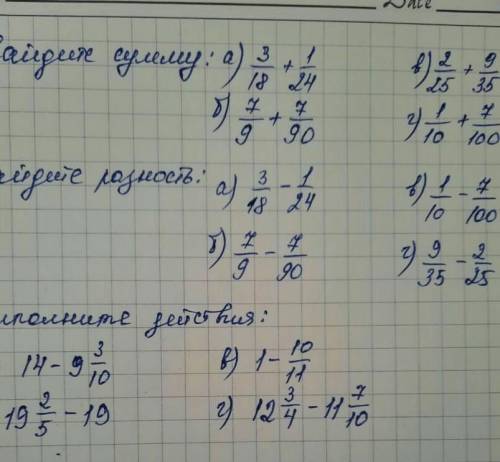 Date
айдите сумму: а) 3/18 + 1/24 в) 2/25 + 9/35
б) 7/9 + 7/90 г) 1/10 + 7/100
йдите разность: а) 3/18 - 1/24 в) 1/10 - 7/100
б) 7/9 - 7/90 г) 9/35 - 2/25
полните действия:
14 - 9 3/10 в) 1 - 10/11
19 2/5 - 19 г) 12 3/4 - 11 7/10